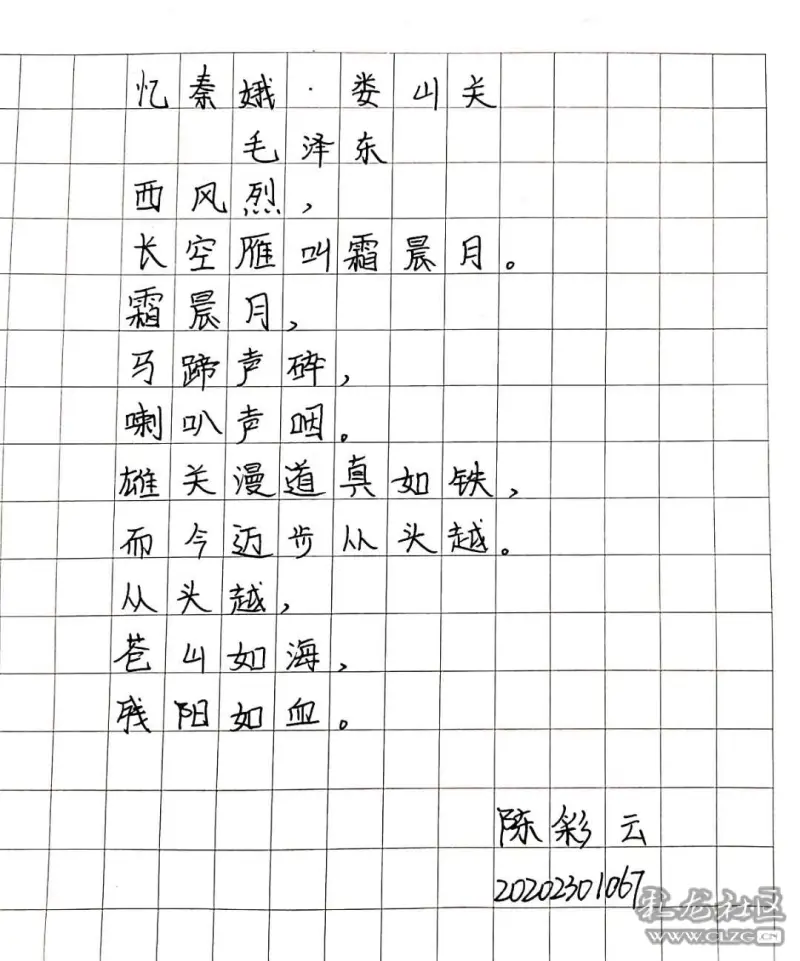 忆秦娥·娄山关
毛泽东
西风烈，
长空雁叫霜晨月。
霜晨月，
马蹄声碎，
喇叭声咽。
雄关漫道真如铁，
而今迈步从头越。
从头越，
苍山如海，
残阳如血。
陈彩云
20202301067
虬龙社区
WWW.CLZG.CN